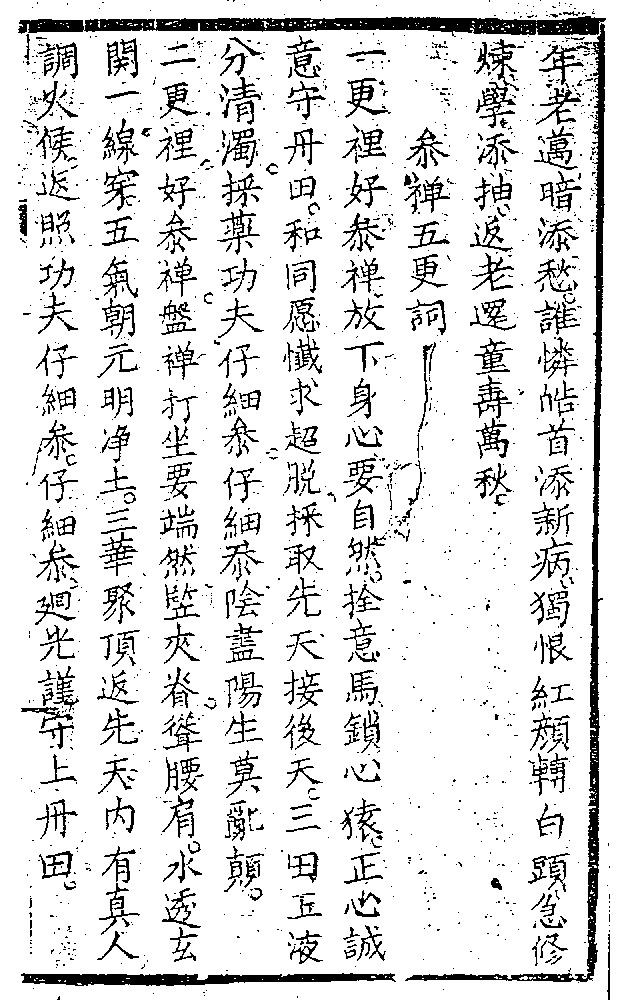 年老邁暗添愁。誰憐皓首添新病、獨恨紅顔轉白頭、急修
煉學添抽、返老還童壽萬秋。
叅禅五更詞
一更裡好叅禅放下身心要自然。拴意馬鎖心猿。正心誠
意守丹田。和同愿懺求超脱採取先天接後天。三田五液
分清濁。採藥功夫仔細叅。仔細叅陰盡陽生莫亂顛。
二更裡好叅禅。盤禅打坐要端然竪夾脊。聳腰肩。水透玄
関一線穿。五氣朝元明净土。三華聚頂返先天。内有真人
調火候。返照功夫仔細叅。仔細叅廻光謹守上丹田。